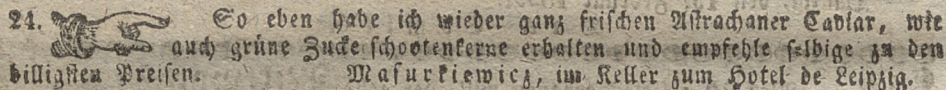 24. So eben habe ich wieder ganz frischen Astrachaner Caviar, wie
auch grüne Zuckeschootenkerne erhalten und empfehle selbige zu den
billigsten Preisen. Masurkiewicz, im Keller zum Hotel de Leipzig.